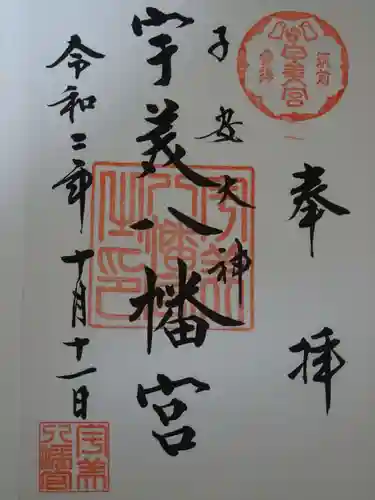 奉拝
筑前
宇美宮
子安大神
宇美八幡宮
令和二年十月十一日
宇美
八幡宮